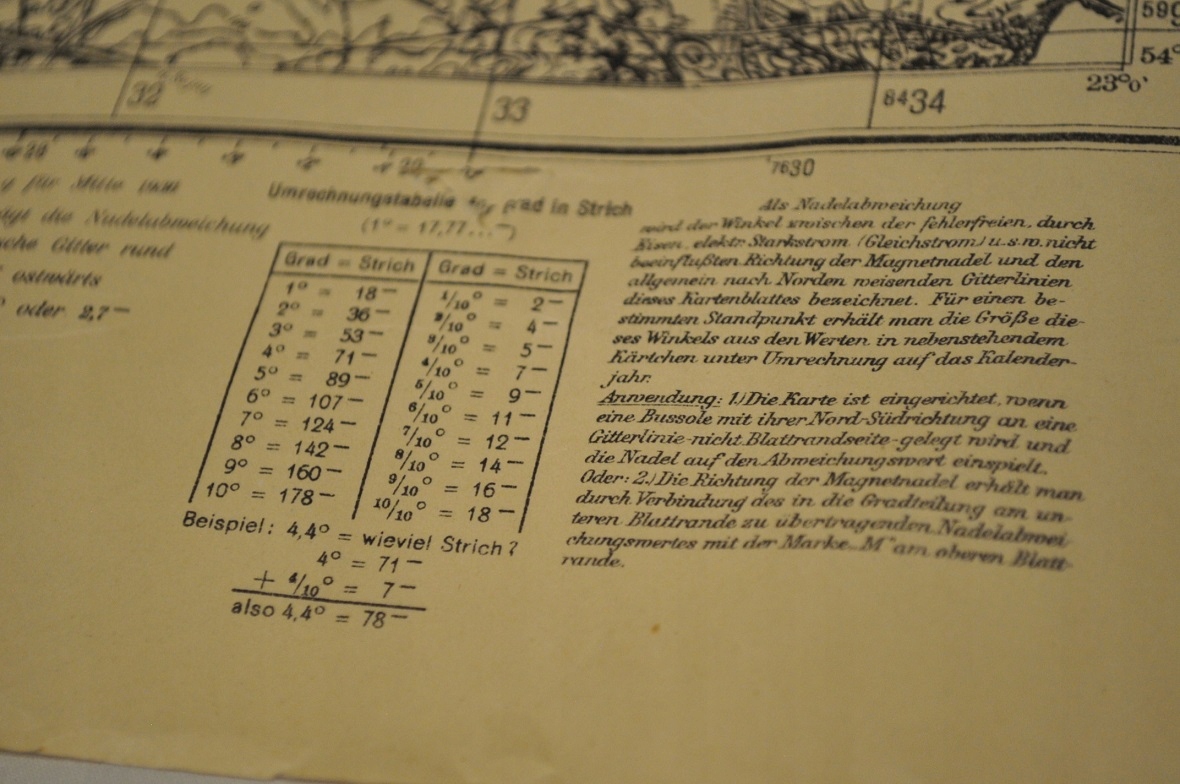 590
54°
23°0'
32
33
8434
20
20
7630
für Mitte
die Nadelabweichung
Gitter rund
ostwärts
oder 2,7—
Umrechnungstabelle grad in Strich
(1° = 17,77...—)
Grad = Strich Grad = Strich
1° = 18— 1/10° = 2—
2° = 36— 2/10° = 4—
3° = 53— 3/10° = 5—
4° = 71— 4/10° = 7—
5° = 89— 5/10° = 9—
6° = 107— 6/10° = 11—
7° = 124— 7/10° = 12—
8° = 142— 8/10° = 14—
9° = 160— 9/10° = 16—
10° = 178— 10/10° = 18—
Beispiel: 4,4° = wieviel Strich?
4° = 71—
+ 4/10° = 7—
also 4,4° = 78—
Als Nadelabweichung
wird der Winkel zwischen der fehlerfreien, durch
Eisen, elektr. Starkstrom (Gleichstrom) u.s.w. nicht
beeinflußten Richtung der Magnetnadel und den
allgemein nach Norden weisenden Gitterlinien
dieses Kartenblattes bezeichnet. Für einen be-
stimmten Standpunkt erhält man die Größe die-
ses Winkels aus den Werten in nebenstehendem
Kärtchen unter Umrechnung auf das Kalender-
jahr.
Anwendung: 1.) Die Karte ist eingerichtet, wenn
eine Bussole mit ihrer Nord-Südrichtung an eine
Gitterlinie-nicht Blattrandseite-gelegt wird und
die Nadel auf den Abweichungswert einspielt.
Oder: 2.) Die Richtung der Magnetnadel erhält man
durch Verbindung des in die Gradteilung am un-
teren Blattrande zu übertragenden Nadelabwei-
chungswertes mit der Marke „M" am oberen Blatt-
rande.